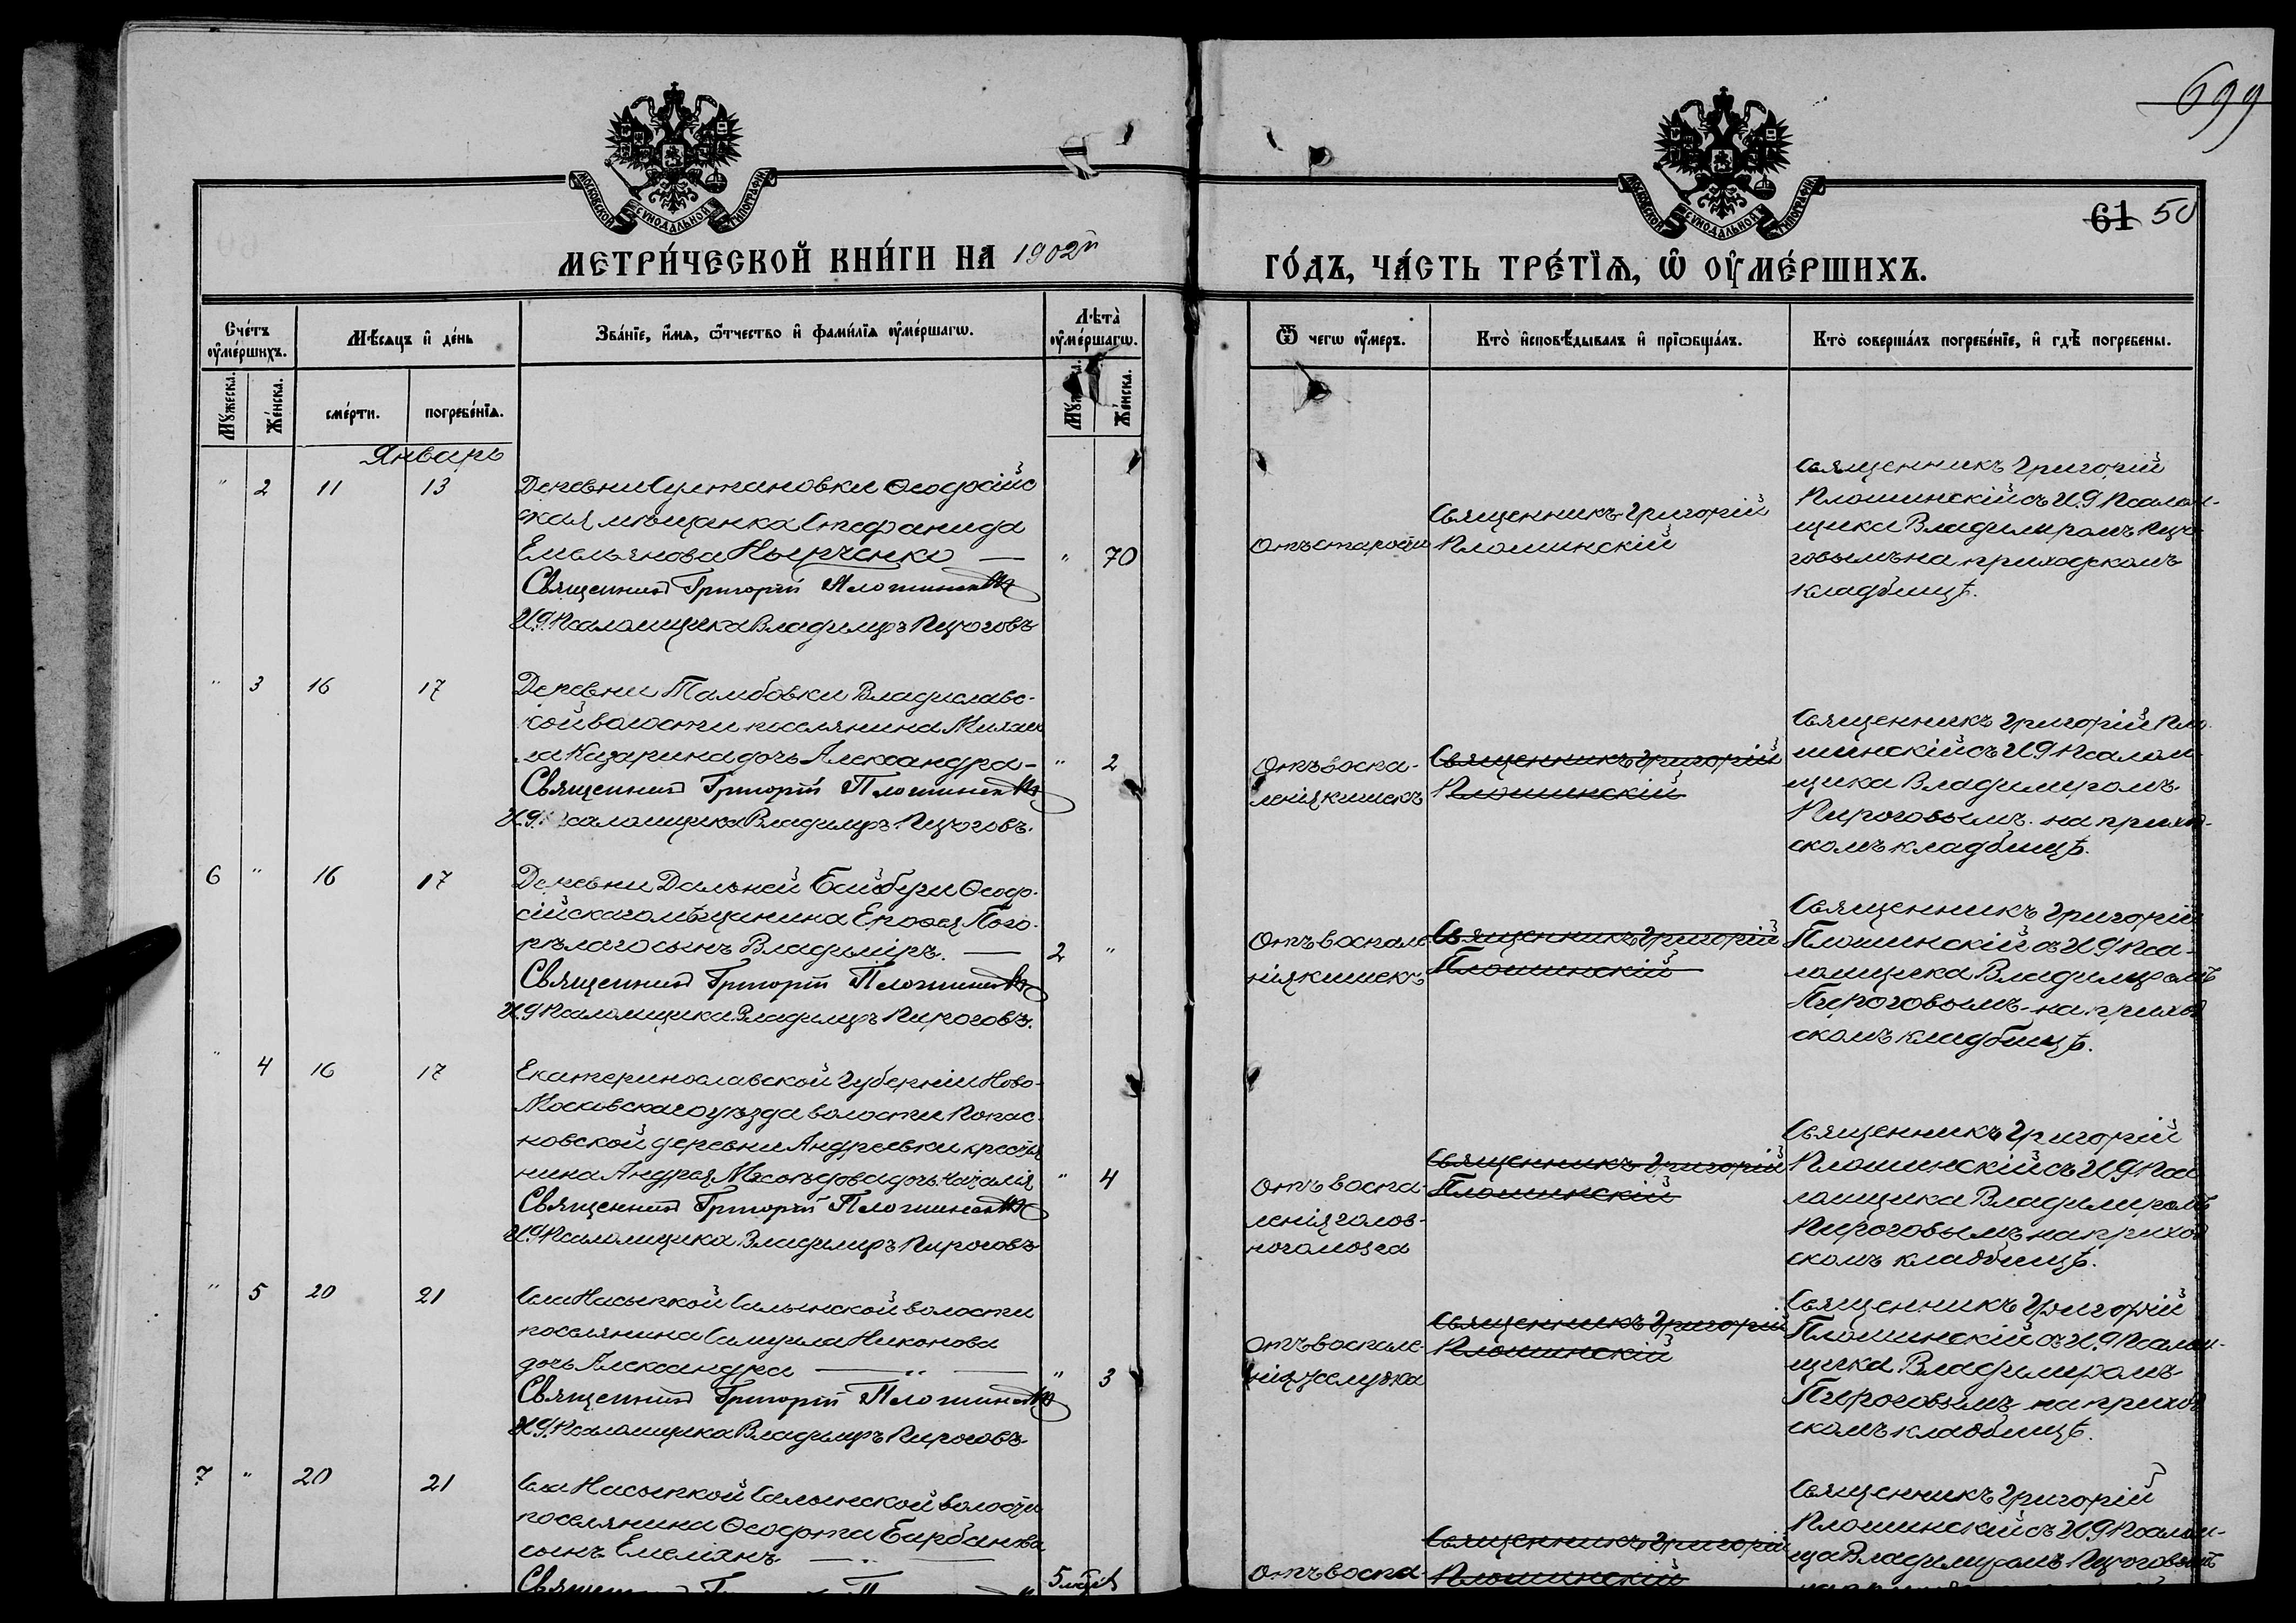 699
МОСКОВСКОЙ СѴНОДАЛЬНОЙ ТИПОГРАФІИ
МОСКОВСКОЙ СѴНОДАЛЬНОЙ ТИПОГРАФІИ
61 50
МЕТРИ́ЧЕСКОЙ КНИ́ГИ НА 1902й
ГО́ДЪ, ЧА́СТЬ ТРЕ́ТІѦ, Ѡ҆ ОУ҆МЕ́РШИХЪ.
Сче́тъ оу҆ме́ршихъ.
Мѣ́сяцъ и҆ де́нь
Зва́ніе, и҆́мя, ѻ҆́тчество и҆ фами́лїя оу҆ме́ршагѡ.
Лѣта̀ оу҆ме́ршагѡ.
Ѿ чегѡ̀ оу҆́меръ.
Кто̀ и҆сповѣ́дывалъ и҆ прїѡбща́лъ.
Кто̀ соверша́лъ погребе́нїе, и҆ гдѣ̀ погребены̀.
Мꙋ́жеска.
Же́нска.
сме́рти.
погребе́нїя.
Же́нска.
Январь
" 2 11 13
Деревни Султановки Ѳеодосійс
кая мѣщанка Стефанида
Емельянова — " 70
Священникъ Григорій Плошинскій
И.д. Псаломщика Владиміръ Пироговъ
Отъ старости
Священникъ Григорій
Плошинскій
Священникъ Григорій
Плошинскій съ И.д Псалом-
щика Владиміромъ Пиро-
говымъ на приходскомъ
кладбищѣ.
" 3 16 17
Деревни Тамбовки Владиславс-
кой волости поселянина Михаи
ла Казарина дочь Александра - " 2
Священникъ Григорій Плошинскій
И.д. Псаломщика Владиміръ Пироговъ.
Отъ воспа-
ленія кишекъ
Священникъ Григорій
Плошинскій
Священникъ Григорій Пло-
шинскій съ И.д Псалом-
щика Владиміромъ
Пироговымъ на приход-
скомъ кладбищѣ.
6 " 16 17
Деревни Дальней Байбуги Ѳеодо-
сійскаго мѣщанина Ерофея Пого-
рѣлаго сынъ Владиміръ. — 2 "
Священникъ Григорій Плошинскій
И.д Псаломщика Владиміръ Пироговъ.
Отъ воспале
нія кишекъ
Священникъ Григорій
Плошинскій
Священникъ Григорій
Плошинскій съ И.д Пса-
ломщика Владиміромъ
Пироговымъ на приход
скомъ кладбищѣ.
" 4 16 17
Екатеринославской губерніи Ново-
Московскаго уѣзда волости Попас-
новской деревни Андреевки крестья
нина Андрея Мясоѣдова дочь " 4
Священникъ Григорій Плошинскій
И.д Псаломщика Владиміръ Пироговъ
Отъ воспа-
ленія голов-
ного мозга
Священникъ Григорій
Плошинскій
Священникъ Григорій
Плошинскій съ И.д Пса
ломщика Владиміромъ
Пироговымъ на приход
скомъ кладбищѣ.
" 5 20 21
Села Насыпкой Салынской волости
поселянина Самуила Никонова
дочь Александра — " — " 3
Священникъ Григорій Плошинскій
И.д. Псаломщика Владиміръ Пироговъ
Отъ воспале-
нія желудка
Священникъ Григорій
Плошинскій
Священникъ Григорій
Плошинскій съ И.д Псалом-
щика Владиміромъ
Пироговымъ на приход
скомъ кладбищѣ.
7 " 20 21
Села Насыпкой Салынской волости
поселянина Ѳеодота
сынъ Емеліанъ — " —
Отъ воспа-
Священникъ Григорій
Плошинскій
Священникъ Григорій
Плошинскій съ И.д Псалом-
ща Владиміромъ Пироговымъ